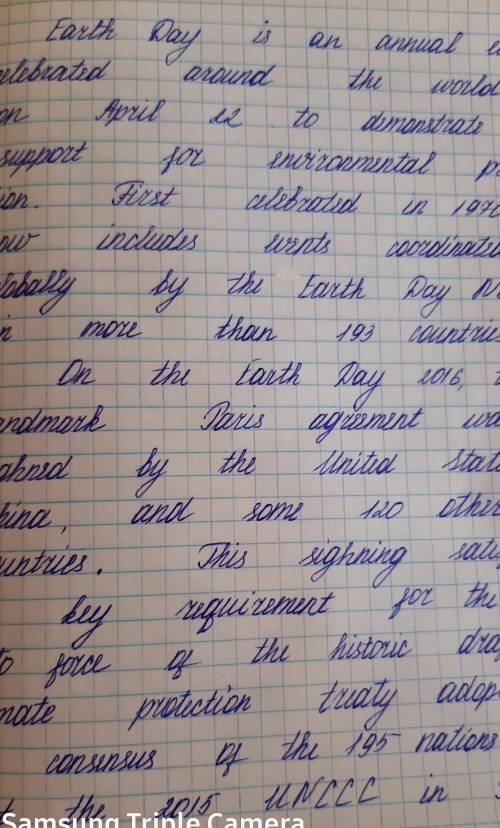 Earth Day is an annual
elebrated around the world
on April 22 to demonstrate
support for environmental p
ion. First celebrated in 197
ow includes events coordinated
lobally by the Earth Day N
n more than 193 countries
On the Earth Day 2016,
andmark Paris agreement wa
ghned by the United Stat
hina, and some 120 other
untries. This sighning sati
key requirement for the
to force of the historic dra
mate protection treaty adop
consensus of the 195 nations
the 2015 UNCCC in
Samsung Triple Camera